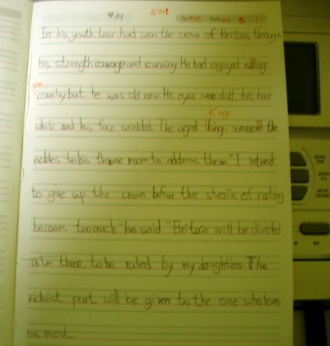 #37
In his youth Lear had won the crown of Britain through
his strength courage and cunning. He had enjoyed ruling
country, but he was old now. His eyes were dull, his hair
King
white and his face wrinkled. The aged king the
nobles to his throne room to address them "I intend
to give up the crown before the strain of ruling
becomes too much" he said "Britain will be divided
into three, to be ruled by my daughters. The
richest part will be given to the one who loves
me most.